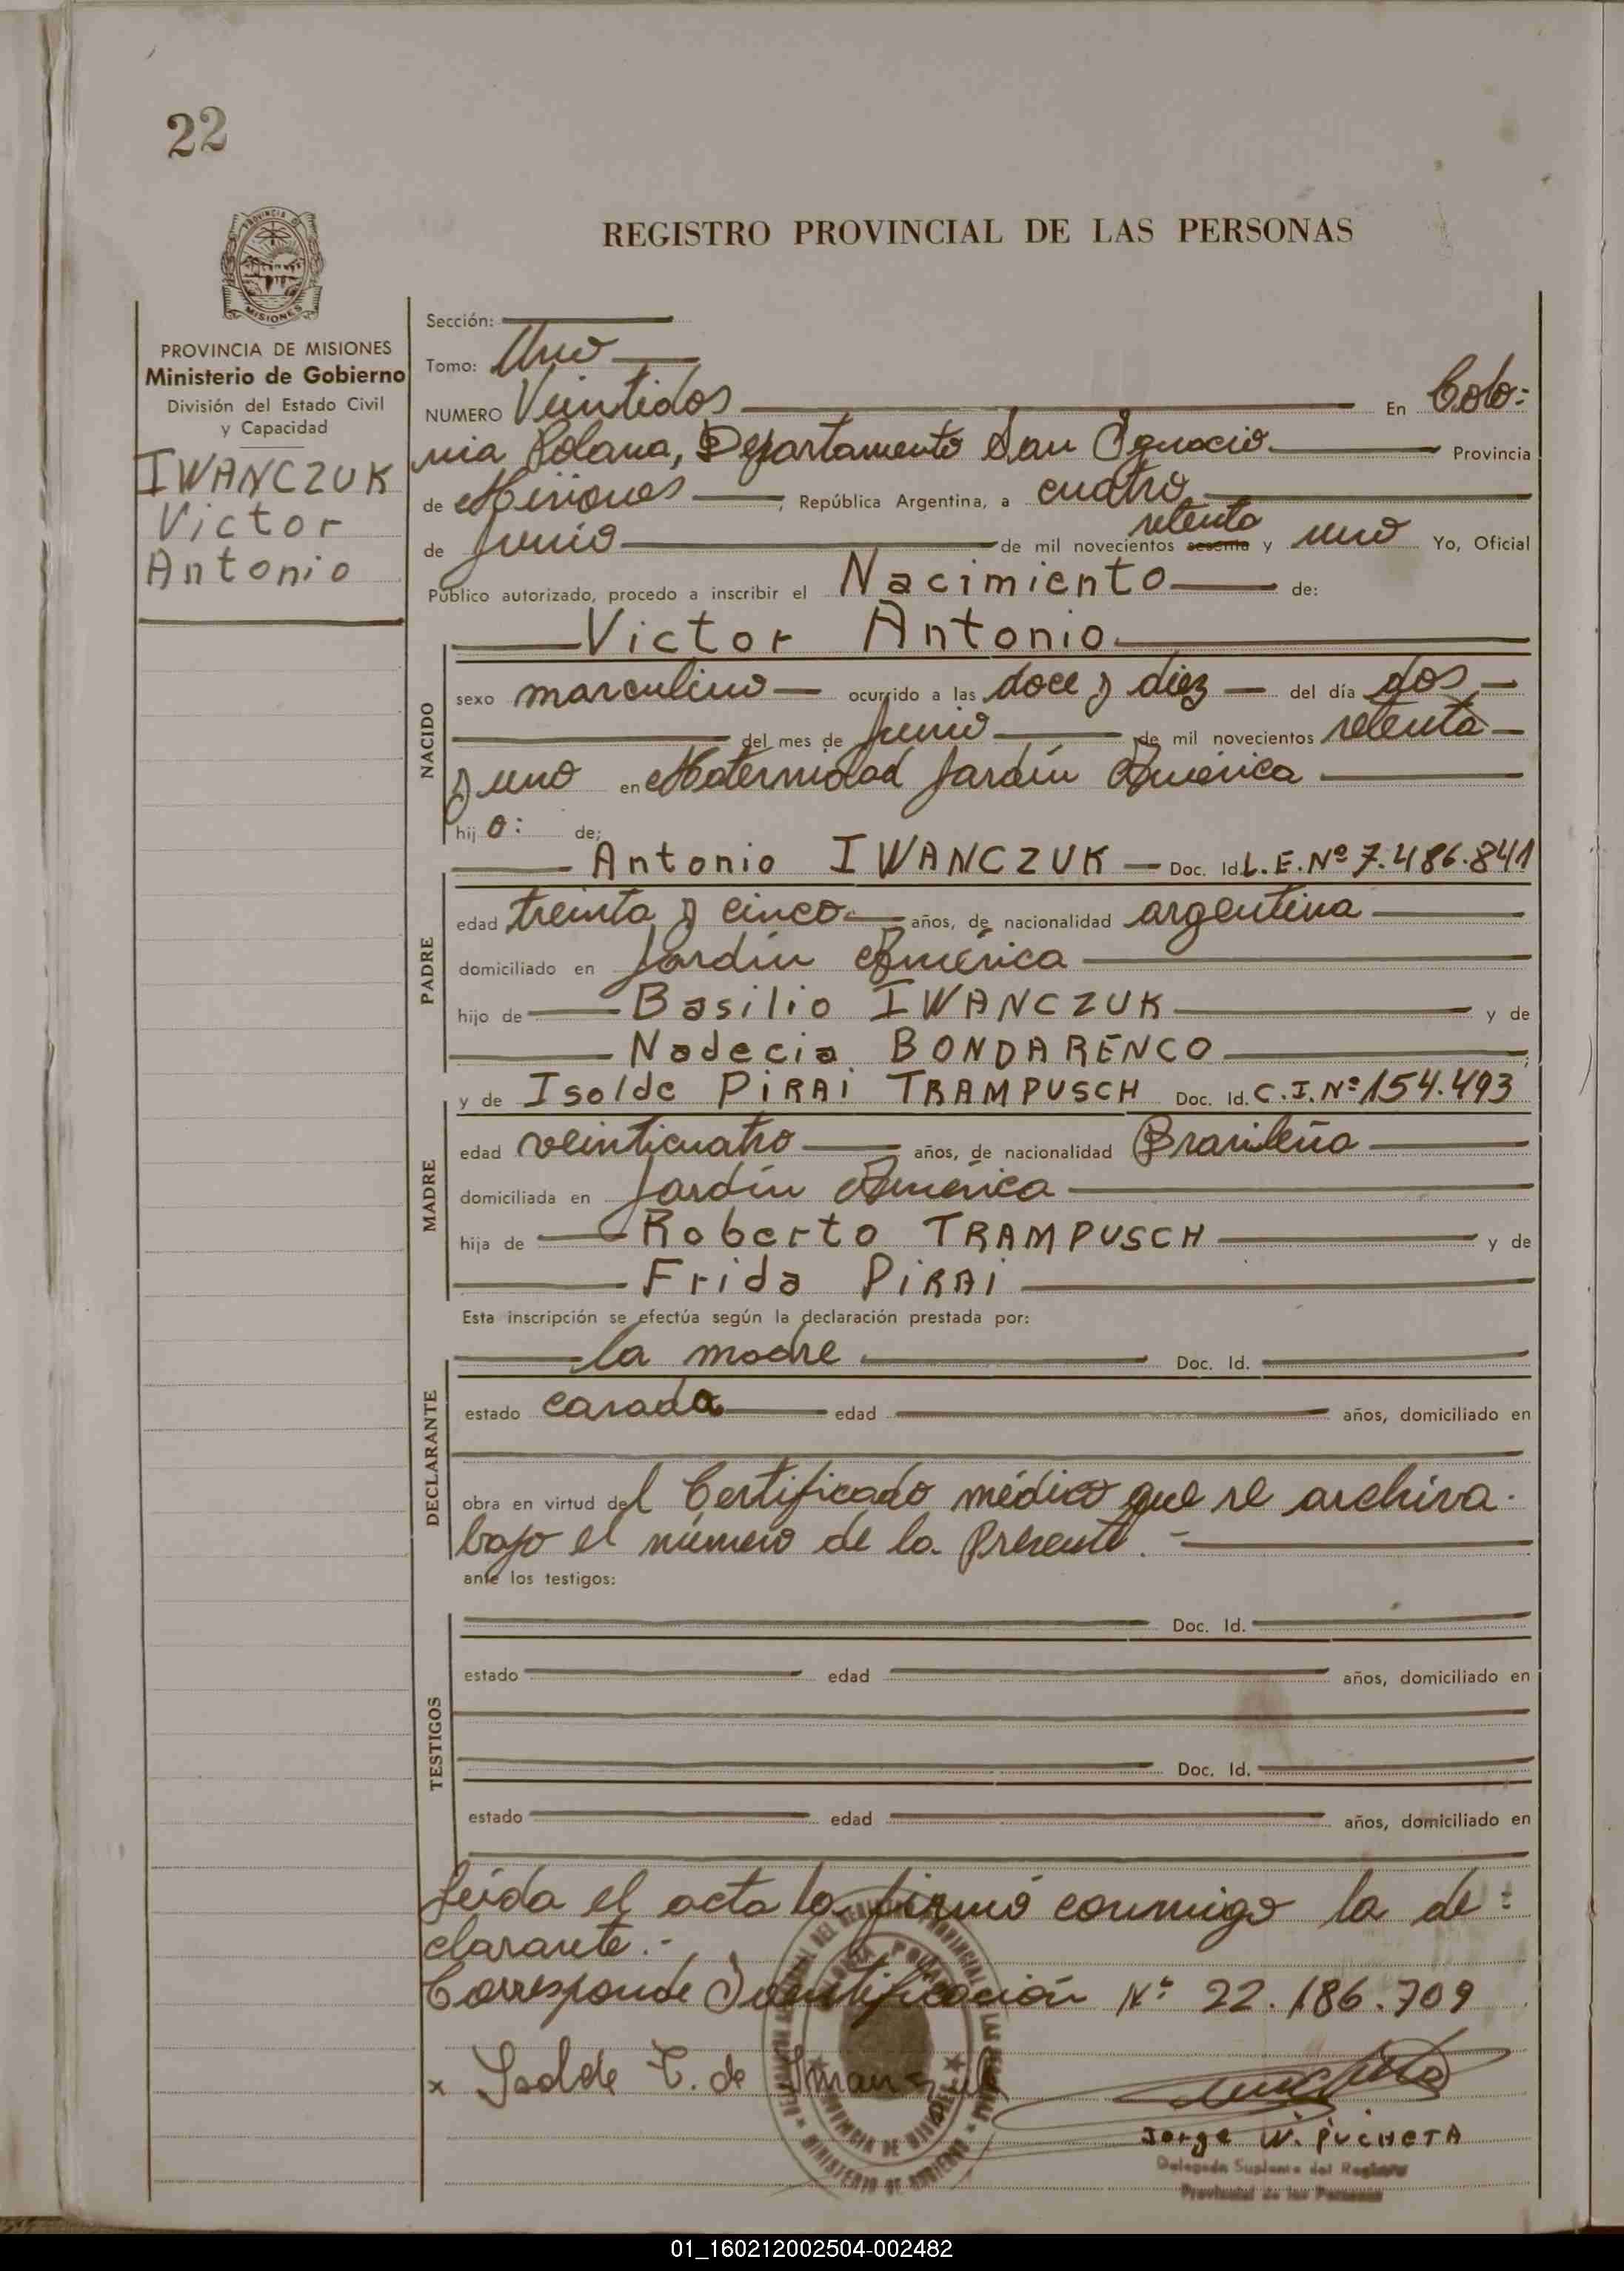 22
PROVINCIA DE
MISIONES
REGISTRO PROVINCIAL DE LAS PERSONAS
PROVINCIA DE MISIONES
Ministerio de Gobierno
División del Estado Civil
y Capacidad
IWANCZUK
Victor
Antonio
Sección:
Tomo: Uno
NUMERO Veintidos En Colo=
nia Polana, Departamento San Ignacio Provincia
de Misiones, República Argentina, a cuatro
de Junio de mil novecientos sesenta setenta y uno Yo, Oficial
Público autorizado, procedo a inscribir el Nacimiento de:
Victor Antonio
NACIDO
sexo masculino ocurrido a las doce y diez del día dos
del mes de Junio de mil novecientos setenta
y uno en Maternidad Jardín América
hij o: de:
PADRE
Antonio IWANCZUK Doc. Id. L.E.Nº 7.486.841
edad treinta y cinco años, de nacionalidad argentina
domiciliado en Jardín América
hijo de Basilio IWANCZUK y de
Nadecia BONDARENCO;
MADRE
y de Isolde PiRAi TRAMPUSCH Doc. Id. C.I.Nº 154.493
edad veinticuatro años, de nacionalidad Brasileña
domiciliada en Jardín América
hija de Roberto TRAMPUSCH y de
Frida PiRAi
Esta inscripción se efectúa según la declaración prestada por:
DECLARANTE
la madre Doc. Id.
estado casada edad años, domiciliado en
obra en virtud del Certificado médico que se archiva
bajo el número de la presente.-
ante los testigos:
TESTIGOS
Doc. Id.
estado edad años, domiciliado en
Doc. Id.
estado edad años, domiciliado en
Leída el acta la firmó conmigo la de=
clarante.-
Corresponde Identificación Nº 22.186.709
x Isolde T. de
Jorge W. PUCHETA
Delegado Suplente del Registro
Provincial de las Personas
MINISTERIO DE GOBIERNO
PROVINCIA DE MISIONES
01_160212002504-002482